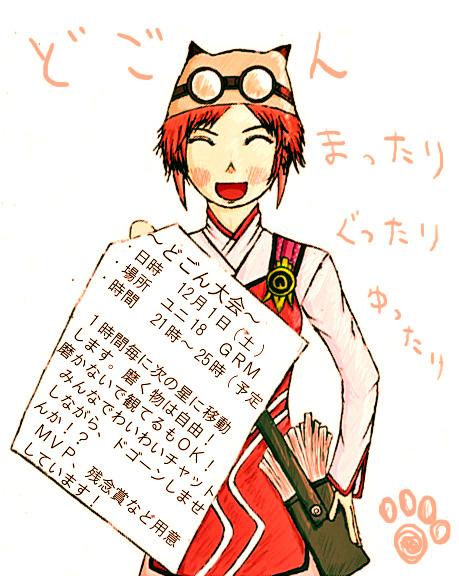 どごん
まったり
ぐったり
ゆったり
～どごん大会～
・日時　12月1日（土）
・場所　ユニ18　GRM
・時間　21時～25時（予定
１時間毎に次の星に移動
します。磨く物は自由！
磨かないで観てるもOK！
みんなでわいわいチャット
しながら、ドゴーンしませ
んか！？
MVP、残念賞など用意
しています！